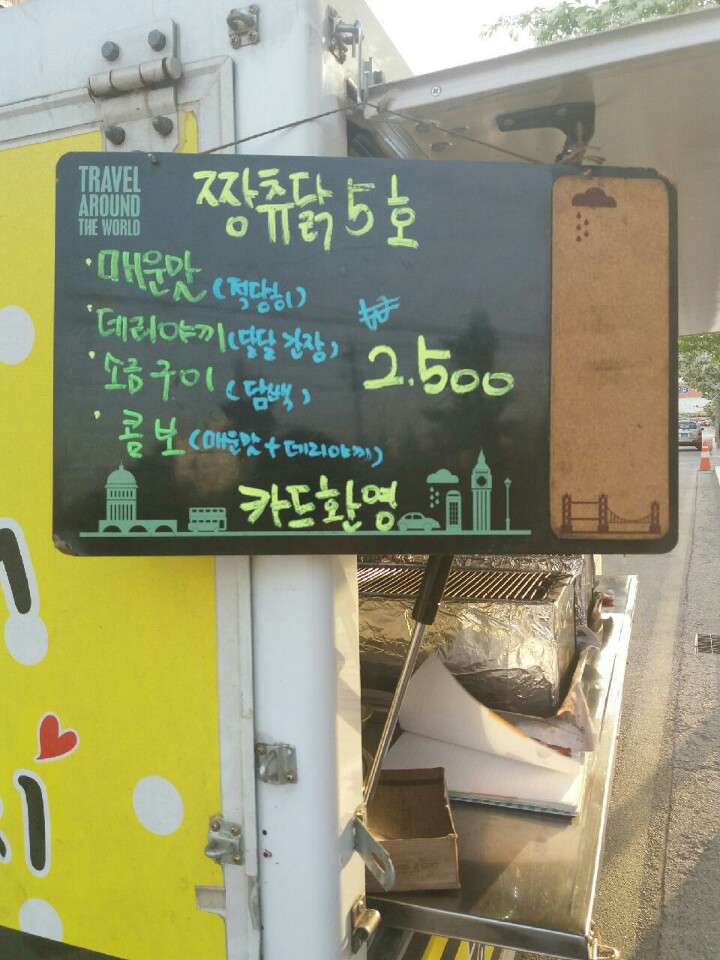 TRAVEL
AROUND
THE WORLD
짱츄닭 5호
매운맛 (적당히)
데리야끼 (달달 간장)
소금구이 (담백)
콤보 (매운맛 + 데리야끼)
₩
2.500
카드환영